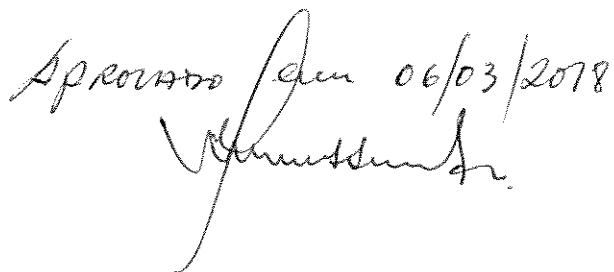 Aprovado em 06/03/2018